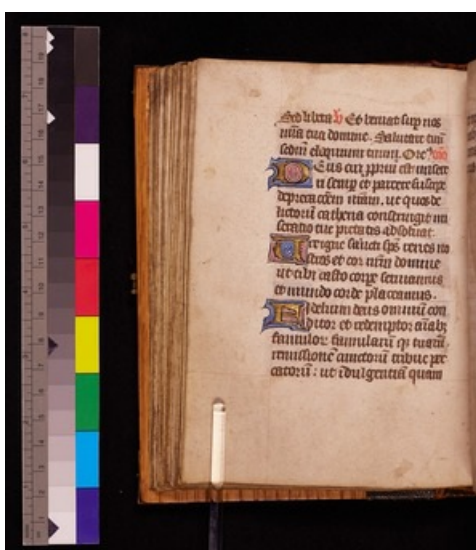 Sed libera V Et veniat sup nos
mīa tua domine. Salutare tuū
sedm eloquium tuum. Ore
Deus cui ꝓpriū est misere
ri semp et parcere suscipe
deprecacōem nr̄am, ut quos de
lictorū cathena constringit mi
seratio tue pietatis absoluat.
Ure igne sancti sp̄s renes no
stros et cor nr̄m domine
ut tibi casto corpe seruiamus
et mundo corde placeamus.
Fidelium deus omniū con
ditor et redemptor aīabꝫ
famulor famularū qꝫ tuarū
remissionē cunctorū tribue pec
catorū: ut īdulgentiā quam